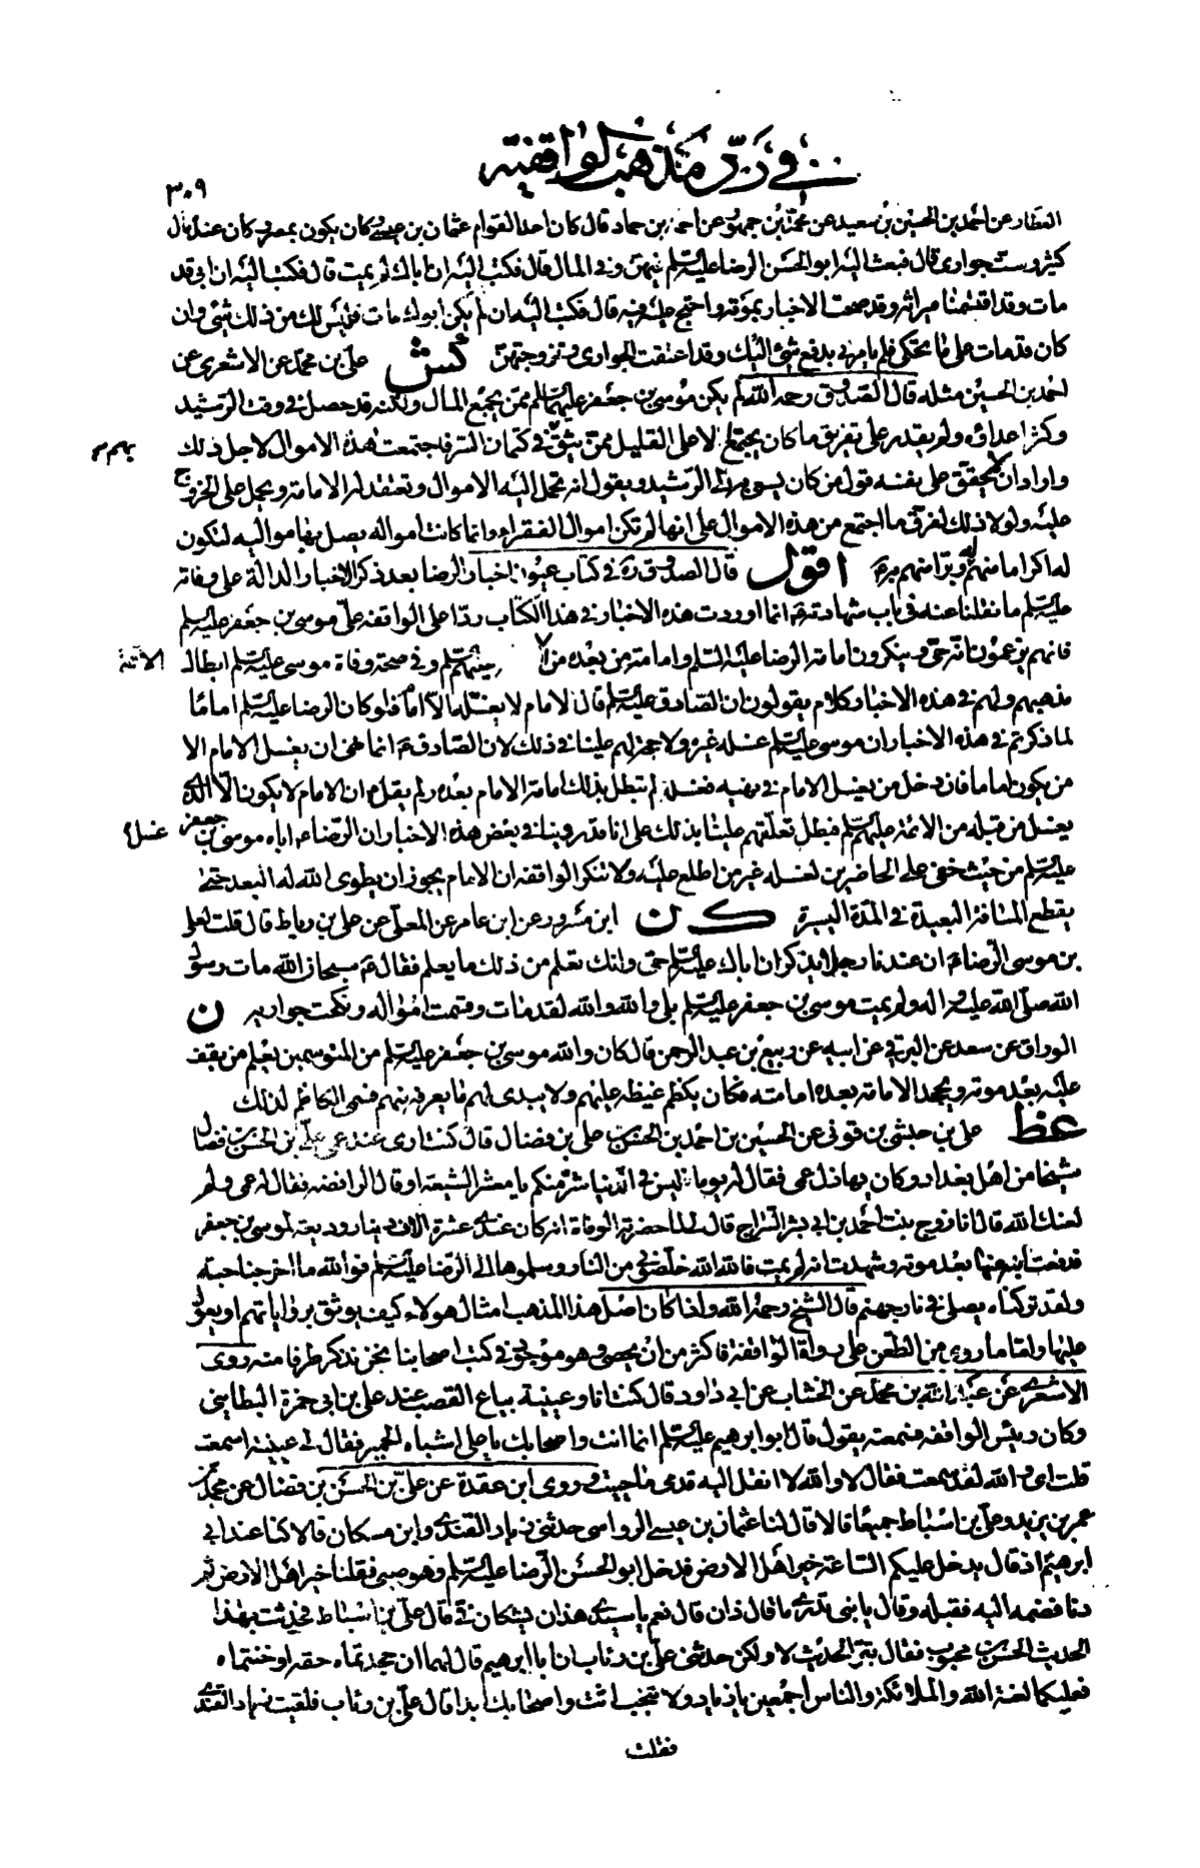 في رد مذهب الواقفية
٣٠٩
العطار عن احمد بن الحسين بن سعيد عن محمد بن جمهور عن احمد بن حماد قال كان احد القوام عثمان بن عيسى وكان يكون بمصر وكان عنده مال
كثير وست جواري قال فبعث اليه ابو الحسن الرضا عليه السلم فيهن وفي المال قال فكتب اليه ان اباك لم يمت قال فكتب اليه ان ابي قد
مات وقد اقتسمنا ميراثه وقد صحت الاخبار بموته واحتج عليه فيه قال فكتب اليه ان لم يكن ابوك مات فليس لك من ذلك شئ وان
كان قد مات على ما تحكي فلم يامرني بدفع شئ اليك وقد اعتقت الجواري وتزوجتهن كش علي بن محمد عن الاشعري عن
احمد بن الحسين مثله قال الصدوق رحمه الله لم يكن موسى بن جعفر عليهما السلم ممن يجمع المال ولكنه قد حصل في وقت الرشيد
وكثر اعداؤه ولم يقدر على تفريق ما كان يجتمع الا على القليل ممن يثق في كتمان السر فاجتمعت هذه الاموال لاجل ذلك
بهم
واراد ان لا يحقق على نفسه قول من كان يسعى به الى الرشيد ويقول انه تحمل اليه الاموال وتعتقد له الامامة ويحمل على الخروج
عليه ولولا ذلك لفرق ما اجتمع من هذه الاموال على انها لم تكن اموال الفقراء وانما كانت امواله يصل بها مواليه لتكون
له اكراما منهم له وبرا منهم به اقول قال الصدوق ره في كتاب عيون اخبار الرضا بعد ذكر الاخبار الدالة على وفاته
عليه السلم ما نقلنا عنه في باب شهادته انما اوردت هذه الاخبار في هذا الكتاب ردا على الواقفه على موسى بن جعفر عليه السلم
فانهم يزعمون انه حي وينكرون امامة الرضا عليه السلم وامامة من بعده من عليهم السلم وفي صحة وفاة موسى عليه السلم ابطال
الائمة
مذهبهم ولهم في هذه الاخبار كلام يقولون ان الصادق عليه السلم قال الامام لا يغسله الا امام فلو كان الرضا عليه السلم اماما
لما ذكرتم في هذه الاخبار ان موسى عليه السلم غسله غيره ولا حجة لهم علينا في ذلك لان الصادق ع انما نهى ان يغسل الامام الا
من يكون اماما فان دخل من يغسل الامام في نهيه فغسله لم تبطل بذلك امامة الامام بعده ولم يقل ع ان الامام لا يكون الا الذي
يغسل من قبله من الائمة عليهم السلم فبطل تعلقهم علينا بذلك على انا قد روينا في بعض هذه الاخبار ان الرضا ع اباه موسى بن جعفر
غسل
عليه السلم من حيث خفي على الحاضرين لغسله غير من اطلع عليه ولا تنكر الواقفه ان الامام يجوز ان يطوى الله له البعد حتى
يقطع المسافة البعيدة في المدة اليسيرة ك ن ابن مسرور عن ابن عامر عن المعلى عن علي بن رباط قال قلت لعلي
بن موسى الرضا ع ان عندنا رجلا يذكر ان اباك عليه السلم حي وانك تعلم من ذلك ما يعلم فقال ع سبحان الله مات رسول
الله صلى الله عليه واله ولم يمت موسى بن جعفر عليه السلم بلى والله والله لقد مات وقسمت امواله ونكحت جواريه ن
الوراق عن سعد عن البرقي عن ابيه عن ربيع بن عبد الرحمن قال كان والله موسى بن جعفر عليه السلم من المتوسمين يعلم من يقف
عليه بعد موته ويجحد الامامة بعده امامته فكان يكظم غيظه عليهم ولا يبدي لهم ما يعرفه منهم فسمي الكاظم لذلك
غط علي بن حبشي بن قوني عن الحسين بن احمد بن الحسن بن علي بن فضال قال كنت ارى عند عمي علي بن الحسن بن فضال
شيخا من اهل بغداد وكان يهازل عمي فقال له يوما ليس في الدنيا شر منكم يا معشر الشيعة او قال الرافضة فقال له عمي ولم
لعنك الله قال انا زوج بنت احمد بن ابي بشر السراج قال لي لما حضرته الوفاة انه كان عندي عشرة الاف دينار وديعة لموسى بن جعفر
فدفعت ابنه عنها بعد موته وشهدت انه لم يمت فالله الله خلصوني من النار وسلموها الى الرضا عليه السلم فوالله ما اخرجنا حبة
ولقد تركناه يصلي في نار جهنم قال الشيخ رحمه الله واذا كان اصل هذا المذهب امثال هولاء كيف يوثق برواياتهم او يعول
عليها واما ما روي من الطعن على رواة الواقفة فاكثر من ان يحصى وهو موجود في كتب اصحابنا نحن نذكر طرفا منه روى
الاشعري عن عبد الله بن محمد عن الخشاب عن ابي داود قال كنت انا وعيينة بياع القصب عند علي بن ابي حمزة البطايني
وكان رئيس الواقفه فسمعته يقول قال ابو ابرهيم عليه السلم انما انت واصحابك يا علي اشباه الحمير فقال لي عيينة اسمعت
قلت اي والله لقد سمعت فقال لا والله لا انقل اليه قدمي ما حييت وروى ابن عقدة عن علي بن الحسن بن فضال عن محمد بن
عمر بن يزيد وعلي بن اسباط جميعا قالا قال لنا عثمان بن عيسى الرواسي حدثني زياد القندي وابن مسكان قالا كنا عند ابي
ابرهيم اذ قال يدخل عليكم الساعة خير اهل الارض فدخل ابو الحسن الرضا عليه السلم وهو صبي فقلنا خير اهل الارض ثم
دنا فضمه اليه فقبله وقال يا بني تدري ما قال ذان قال نعم يا سيدي هذان يشكان في قال علي بن اسباط فحدثت بهذا
الحديث الحسن بن محبوب فقال بتر الحديث لا ولكن حدثني علي بن رئاب ان ابا ابرهيم قال لهما ان جحدتماه حقه او خنتماه
فعليكما لعنة الله والملائكة والناس اجمعين يا زياد ولا تنجب انت واصحابك ابدا قال علي بن رئاب فلقيت زياد القندي
فقلت